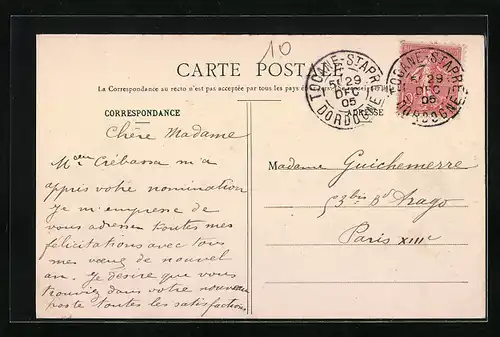 10
CARTE POSTALE
La Correspondance au recto n'est pas acceptée par tous les pays
CORRESPONDANCE
ADRESSE
TOCANE-ST APRE
5E 29
DEC
05
DORDOGNE
TOCANE-ST APRE
5E 29
DEC
05
DORDOGNE
Chère Madame
Mr Crébassa m'a
appris votre nomination
Je m'empresse de
vous adresser toutes mes
félicitations avec tous
mes vœux de nouvel
an. Je desire que vous
trouviez dans votre nouveau
poste toutes les satisfactions
Madame Guichemerre
53 bis Bd Arago
Paris XIIIe